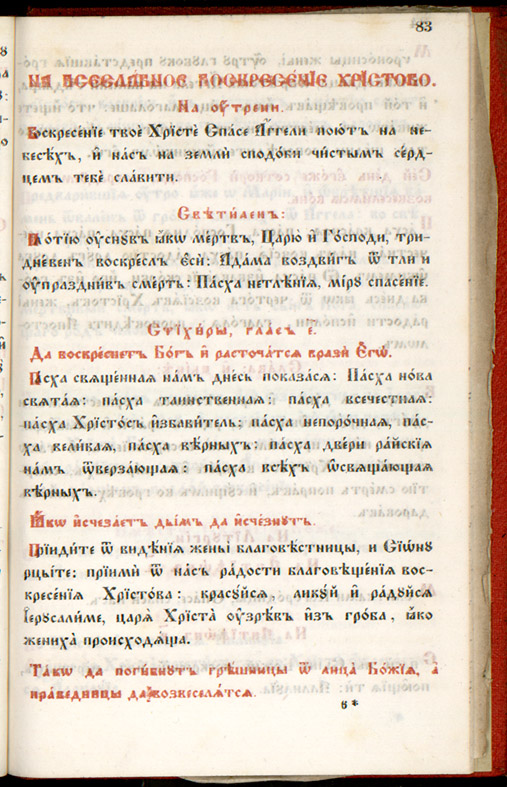 83
НА ВСЕСЛАВНОЕ ВОСКРЕСЕНІЕ ХРІСТОВО.
На оутрени.
Воскресе́нїе твоѐ Хрїстѐ Спа́се А҆́ггели пою́тъ на не-
бесѣ́хъ, и҆ на́съ на землѝ сподо́би чи́стымъ се́рд-
цемъ тебѐ сла́вити.
Свѣти́ленъ:
Пло́тїю оу҆снꙋ́въ ꙗ҆́кѡ ме́ртвъ, Царю̀ и҆ Го́споди, три-
дне́венъ воскре́слъ є҆сѝ: А҆да́ма воздви́гъ ѿ тлѝ и
оу҆праздни́въ сме́рть: Па́сха нетлѣ́нїѧ, мі́рꙋ спасе́нїе.
Стїхи̑ры, гла́съ є҃.
Да воскре́снетъ Бо́гъ и҆ расточа́тсѧ вразѝ Є҆гѡ̀.
Па́сха свѧще́ннаѧ на́мъ дне́сь показа́сѧ: Па́сха но́ва
свѧта́ѧ: па́сха таи́нственнаѧ: па́сха всечестна́ѧ:
па́сха Хрїсто́съ и҆зба́витель: па́сха непоро́чнаѧ, па́с-
ха вели́каѧ, па́сха вѣ́рныхъ: па́сха две́ри ра́йскїѧ
на́мъ ѿверза́ющаѧ: па́сха всѣ́хъ ѡ҆свѧща́ющаѧ
вѣ́рныхъ.
Ꙗ҆́кѡ и҆счеза́етъ ды́мъ да и҆сче́знꙋтъ.
Прїиди́те ѿ видѣ́нїѧ жены̀ благовѣ́стницы, и Сїѡ́нꙋ
рцы́те: прїимѝ ѿ на́съ ра́дости благовѣще́нїѧ вос-
кресе́нїѧ Хрїсто́ва: красꙋ́йсѧ, ликꙋ́й и҆ ра́дꙋйсѧ
І҆ерꙋсали́ме, царѧ̀ Хрїста̀ оу҆зрѣ́въ и҆зъ гро́ба, ꙗ҆́кѡ
жениха̀ происходѧ́ща.
Та́кѡ да поги́бнꙋтъ грѣ́шницы ѿ лица̀ Бо́жїѧ, а҆
пра́ведницы да возвеселѧ́тсѧ.
6*